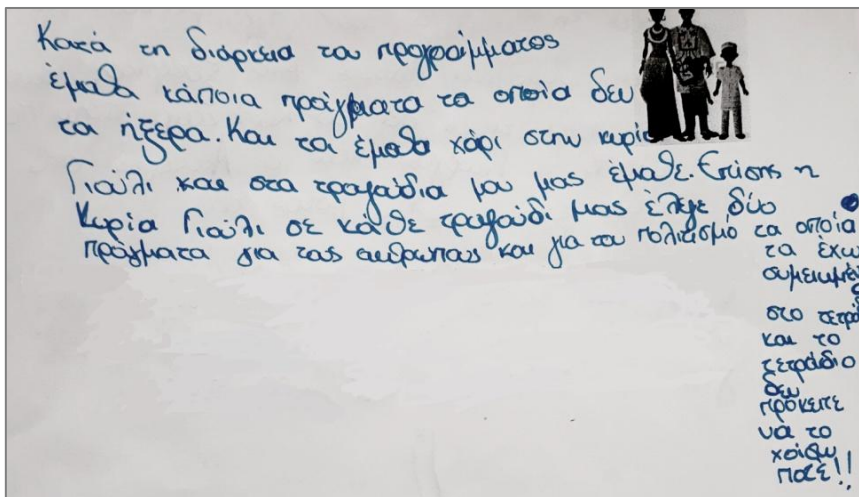 Κατά τη διάρκεια του προγράμματος
έμαθα κάποια πράγματα τα οποία δεν
τα ήξερα. Και τα έμαθα χάρι στην κυρί
Γιούλι και στα τραγούδια που μας έμαθε. Επίσης η
Κυρία Γιούλι σε κάθε τραγούδι μας έλεγε δύο
πράγματα για τους ανθρώπους και για τον πολιτισμό τα οποία
τα έχω
σημειωμέν
στο τετρά
και το
τετράδιο
δεν
πρόκειτε
να το
χάσω
ποτέ!!